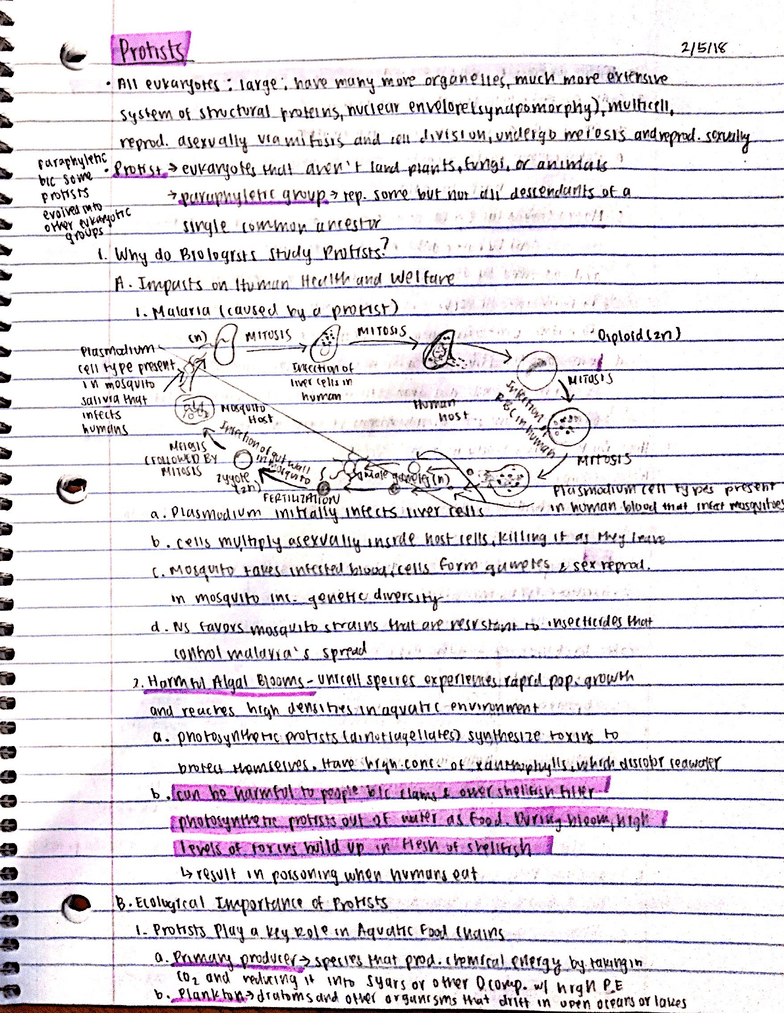 Protists
2/5/18
• All eukaryotes; large; have many more organelles, much more extensive
system of structural proteins, nuclear envelore (synapomorphy), multicell,
reprod. asexually via mitosis and cell division, undergo meiosis and reprod. sexually
paraphyletic
b/c some
protists
evolved into
other eukaryotic
groups
• Protist → eukaryotes that aren't land plants, fungi, or animals
→ paraphyletic group → rep. some but not all descendants of a
single common ancestor
1. Why do Biologists Study Protists?
A. Impacts on Human Health and Welfare
1. Malaria (caused by a protist)
Plasmodium
cell type present
in mosquito
saliva that
infects
humans
(n)
MITOSIS
Infection of
liver cells in
human
MITOSIS
Human
host
Diploid (2n)
MITOSIS
Infection of
RBC in human
MITOSIS
Plasmodium cell types present
in human blood that infect mosquitoes
gamete (n)
FERTILIZATION
zygote
(2n)
Infection of gut wall
in mosquito
MEIOSIS
(FOLLOWED BY
MITOSIS
Mosquito
Host
a. Plasmodium initially infects liver cells
b. cells multiply asexually inside host cells, killing it as they leave
c. Mosquito takes infested blood, cells form gametes & sex reprod.
in mosquito inc. genetic diversity
d. NS favors mosquito strains that are resistant to insecticides that
control malaria's spread
2. Harmful Algal Blooms - unicell species experiences rapid pop. growth
and reaches high densities in aquatic environment
a. photosynthetic protists (dinoflagellates) synthesize toxins to
protect themselves. Have high conc. of xanthophylls, which discolor seawater
b. can be harmful to people b/c clams & other shellfish filter
photosynthetic protists out of water as food. During bloom, high
levels of toxins build up in flesh of shellfish
↳ result in poisoning when humans eat
B. Ecological Importance of Protists
1. Protists Play a Key Role in Aquatic Food Chains
a. Primary producer → species that prod. chemical energy by taking in
CO2 and reducing it into sugars or other O comp. w/ high P.E
b. Plankton → diatoms and other organisms that drift in open oceans or lakes